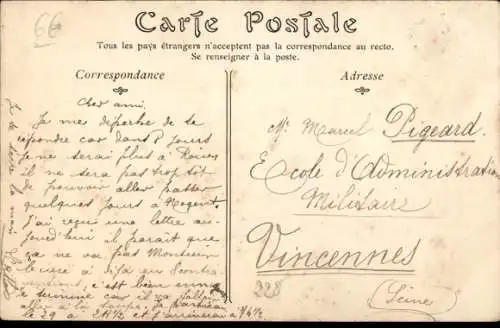 66
Carte Postale
Tous les pays étrangers n'acceptent pas la correspondance au recto.
Se renseigner à la poste.
Correspondance
Adresse
Cher ami.
Je me dépêche de te
répondre car dans 8 jours
je ne serai plus à Rouen
il ne sera pas trop tôt
de pouvoir aller passer
quelques jours à Nogent
J'ai reçu une lettre au-
jourd'hui il paraît que
ça ne va pas Monsieur
le curé a
c'est bien
termine car il va falloir
aller à la soupe. Je partirai
le 29 à et j'arriverai à
Je te serre la main
Mr Marcel Pigeard.
Ecole d'Administration
Militaire
Vincennes
(Seine)
228